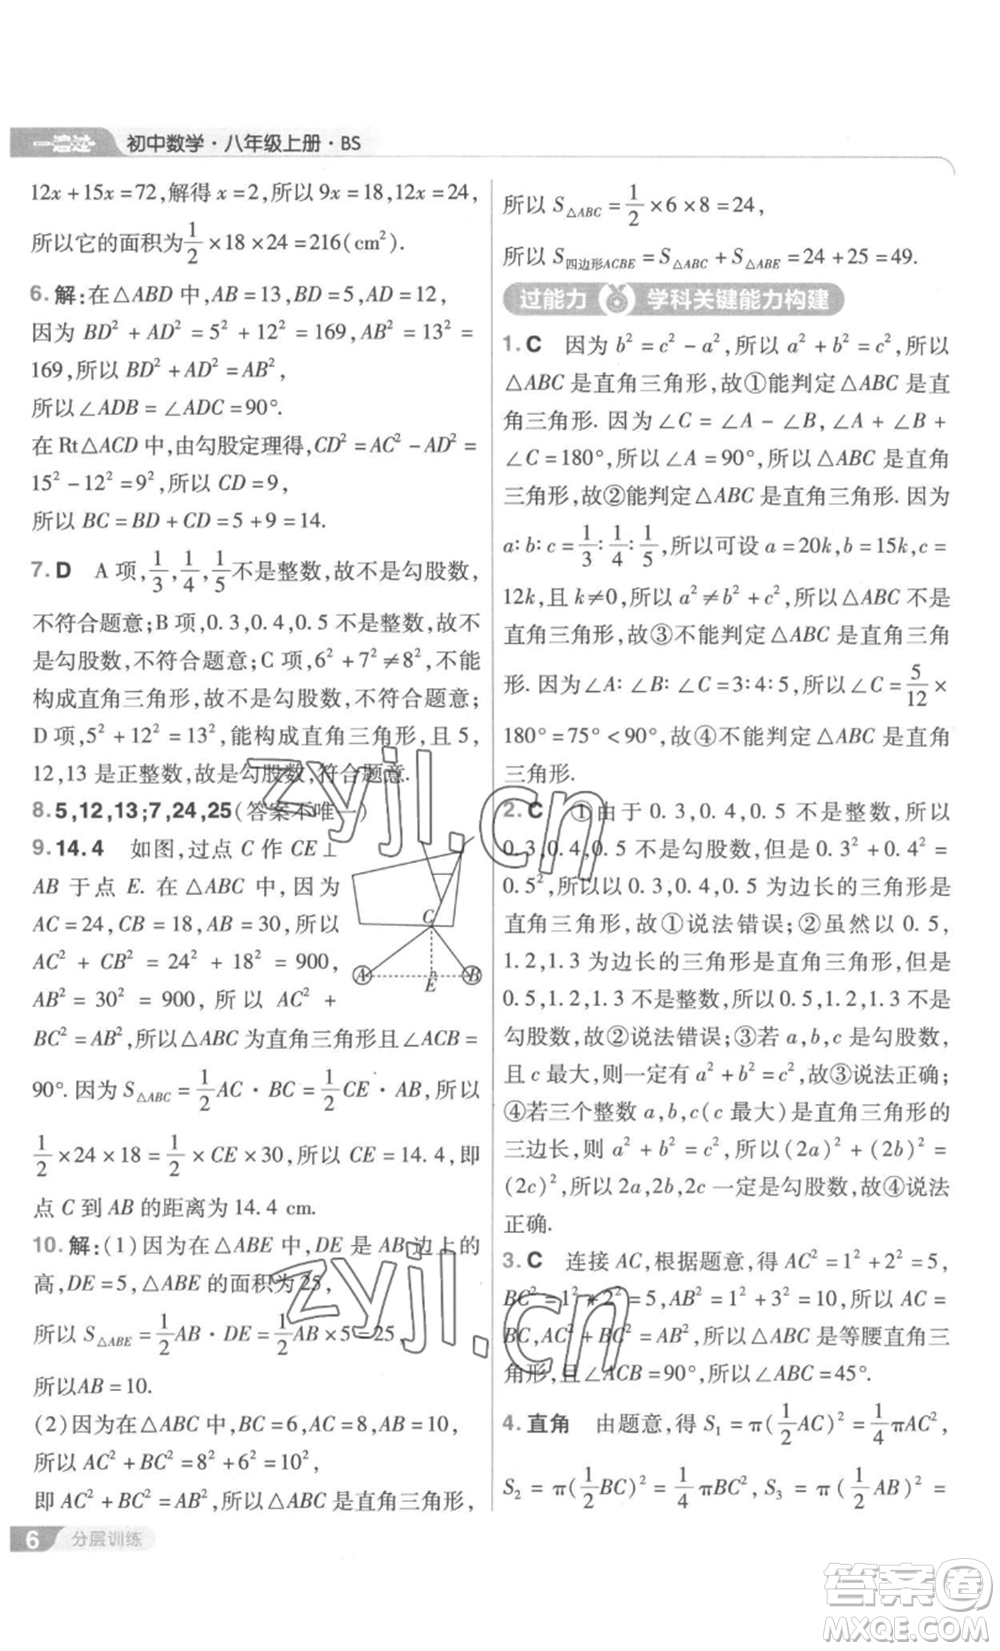 一遍过 初中数学·八年级上册·BS
12x+15x=72,解得 x=2,所以 9x=18,12x=24,
所以它的面积为1/2×18×24=216(cm²).
6.解:在△ABD 中,AB=13,BD=5,AD=12,
因为 BD²+AD²=5²+12²=169,AB²=13²=
169,所以 BD²+AD²=AB²,
所以∠ADB=∠ADC=90°.
在 Rt△ACD 中,由勾股定理得,CD²=AC²-AD²=
15²-12²=9²,所以 CD=9,
所以 BC=BD+CD=5+9=14.
7.D A 项,1/3,1/4,1/5不是整数,故不是勾股数,
不符合题意;B项,0.3,0.4,0.5 不是整数,故不
是勾股数,不符合题意;C 项,6²+7²≠8²,不能
构成直角三角形,故不是勾股数,不符合题意;
D 项,5²+12²=13²,能构成直角三角形,且 5,
12,13 是正整数,故是勾股数,符合题意.
8.5,12,13;7,24,25(答案不唯一)
9.14.4 如图,过点 C 作 CE⊥
AB 于点 E. 在△ABC 中,因为
AC=24,CB=18,AB=30,所以
AC²+CB²=24²+18²=900,
AB²=30²=900,所以 AC²+
BC²=AB²,所以△ABC 为直角三角形且∠ACB=
90°.因为 S△ABC=1/2AC·BC=1/2CE·AB,所以
1/2×24×18=1/2×CE×30,所以 CE=14.4,即
点 C 到 AB 的距离为 14.4 cm.
C
A E B
10.解:(1)因为在△ABE 中,DE 是 AB 边上的
高,DE=5,△ABE 的面积为 25,
所以 S△ABE=1/2AB·DE=1/2AB×5=25,
所以AB=10.
(2)因为在△ABC 中,BC=6,AC=8,AB=10,
所以 AC²+BC²=8²+6²=10²,
即 AC²+BC²=AB²,所以△ABC 是直角三角形,
6 分层训练
所以 S△ABC=1/2×6×8=24,
所以 S四边形ACBE=S△ABC+S△ABE=24+25=49.
过能力 学科关键能力构建
1.C 因为 b²=c²-a²,所以 a²+b²=c²,所以
△ABC 是直角三角形,故①能判定△ABC 是直
角三角形. 因为∠C=∠A-∠B,∠A+∠B+
∠C=180°,所以∠A=90°,所以△ABC 是直角
三角形,故②能判定△ABC 是直角三角形. 因为
a:b:c=1/3:1/4:1/5,所以可设 a=20k,b=15k,c=
12k,且 k≠0,所以 a²≠b²+c²,所以△ABC 不是
直角三角形,故③不能判定△ABC 是直角三角
形. 因为∠A:∠B:∠C=3:4:5,所以∠C=5/12×
180°=75°<90°,故④不能判定△ABC 是直角
三角形.
2.C ①由于 0.3,0.4,0.5 不是整数,所以
0.3,0.4,0.5 不是勾股数,但是 0.3²+0.4²=
0.5²,所以以 0.3,0.4,0.5 为边长的三角形是
直角三角形,故①说法错误;②虽然以 0.5,
1.2,1.3 为边长的三角形是直角三角形,但是
0.5,1.2,1.3 不是整数,所以 0.5,1.2,1.3 不是
勾股数,故②说法错误;③若 a,b,c 是勾股数,
且 c 最大,则一定有 a²+b²=c²,故③说法正确;
④若三个整数 a,b,c(c 最大)是直角三角形的
三边长,则 a²+b²=c²,所以(2a)²+(2b)²=
(2c)²,所以 2a,2b,2c 一定是勾股数,故④说法
正确.
3.C 连接 AC,根据题意,得 AC²=1²+2²=5,
BC²=1²+2²=5,AB²=1²+3²=10,所以 AC=
BC,AC²+BC²=AB²,所以△ABC 是等腰直角三
角形,且∠ACB=90°,所以∠ABC=45°.
4.直角 由题意,得 S₁=π(1/2AC)²=1/4πAC²,
S₂=π(1/2BC)²=1/4πBC²,S₃=π(1/2AB)²=
zyjl.cn
zyjl.cn
答案卷
MXQE.COM